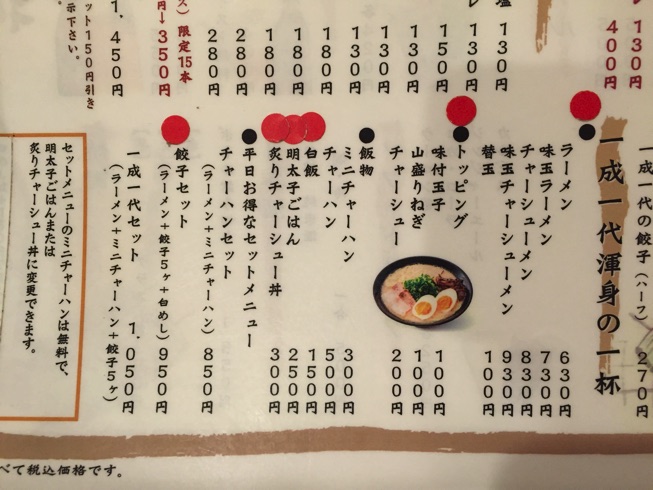 一成一代の餃子（ハーフ） 270円
一成一代渾身の一杯
ラーメン 630円
味玉ラーメン 730円
チャーシューメン 830円
味玉チャーシューメン 930円
替玉 100円
トッピング
味付玉子 100円
山盛りねぎ 100円
チャーシュー 200円
飯物
ミニチャーハン 300円
チャーハン 500円
白飯 150円
明太子ごはん 250円
炙りチャーシュー丼 300円
平日お得なセットメニュー
チャーハンセット
（ラーメン＋ミニチャーハン） 850円
餃子セット
（ラーメン＋餃子5ヶ＋白めし） 950円
一成一代セット
（ラーメン＋ミニチャーハン＋餃子5ヶ） 1.050円
セットメニューのミニチャーハンは無料で、
明太子ごはんまたは
炙りチャーシュー丼に変更できます。
130円
400円
塩 130円
130円
150円
130円
130円
130円
180円
180円
180円
280円
280円
ス）限定15本
円→350円
1.450円
ット150円引き
示下さい。
べて税込価格です。